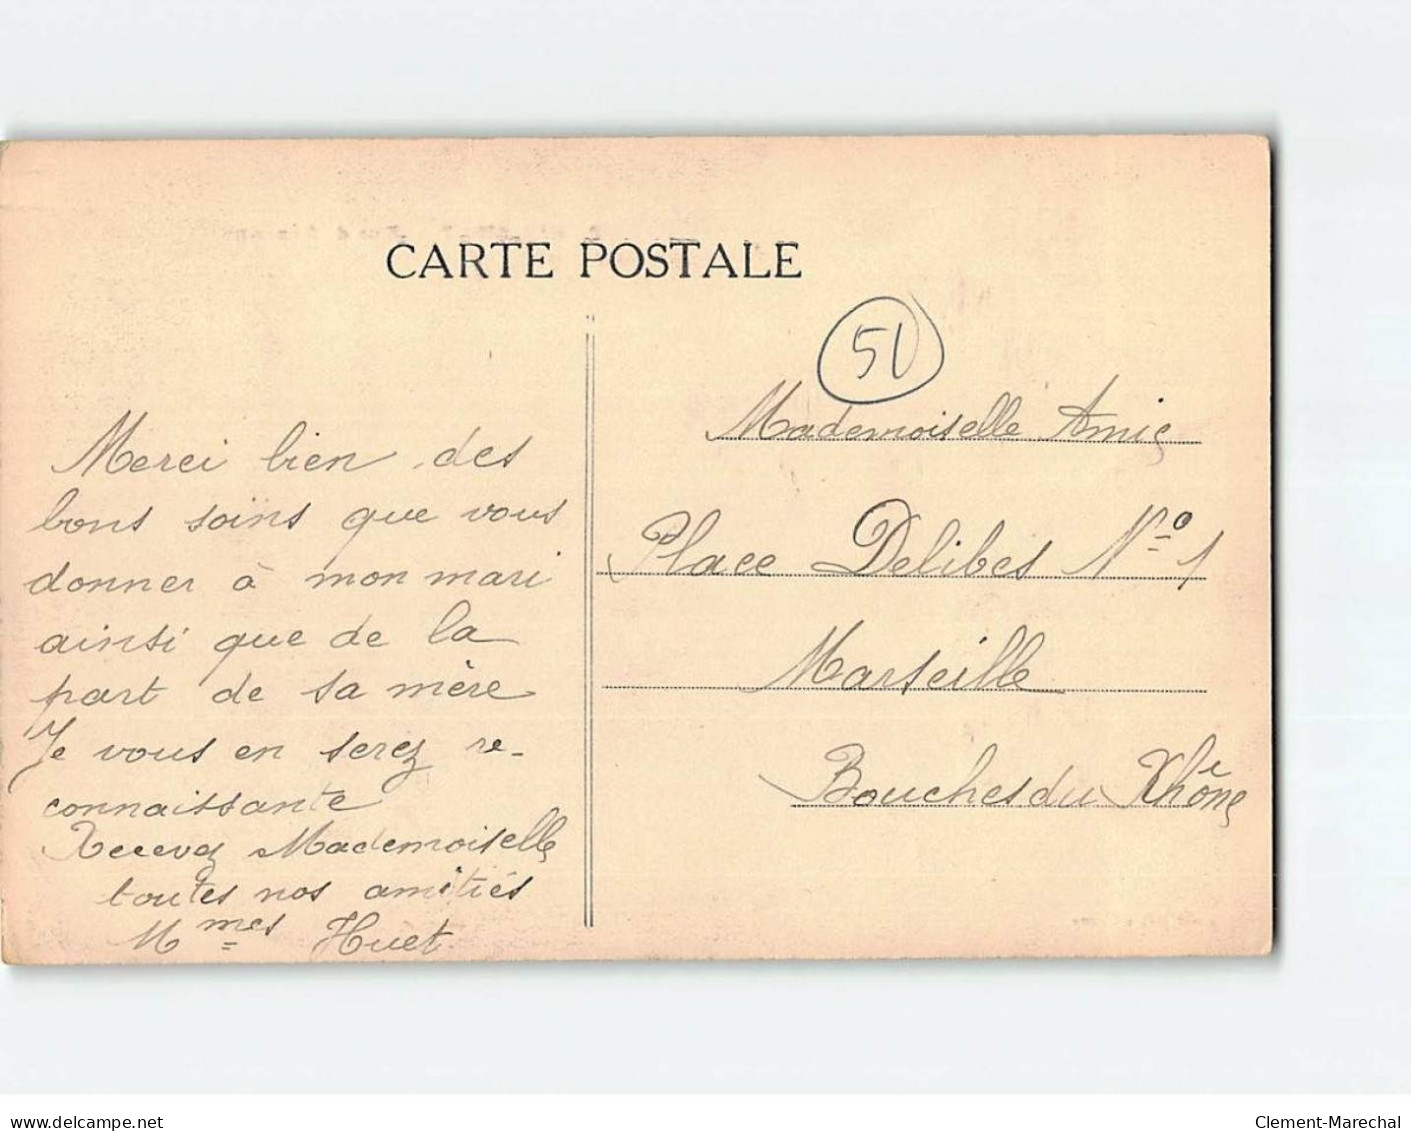 CARTE POSTALE
51
Merci bien des
bons soins que vous
donner à mon mari
ainsi que de la
part de sa mère
Je vous en serez re-
connaissante
Recevez Mademoiselle
toutes nos amitiés
Mmes Huet
Mademoiselle Amic
Place Delibes No 1
Marseille
Bouches du Rhône
www.delcampe.net
Clement-Marechal